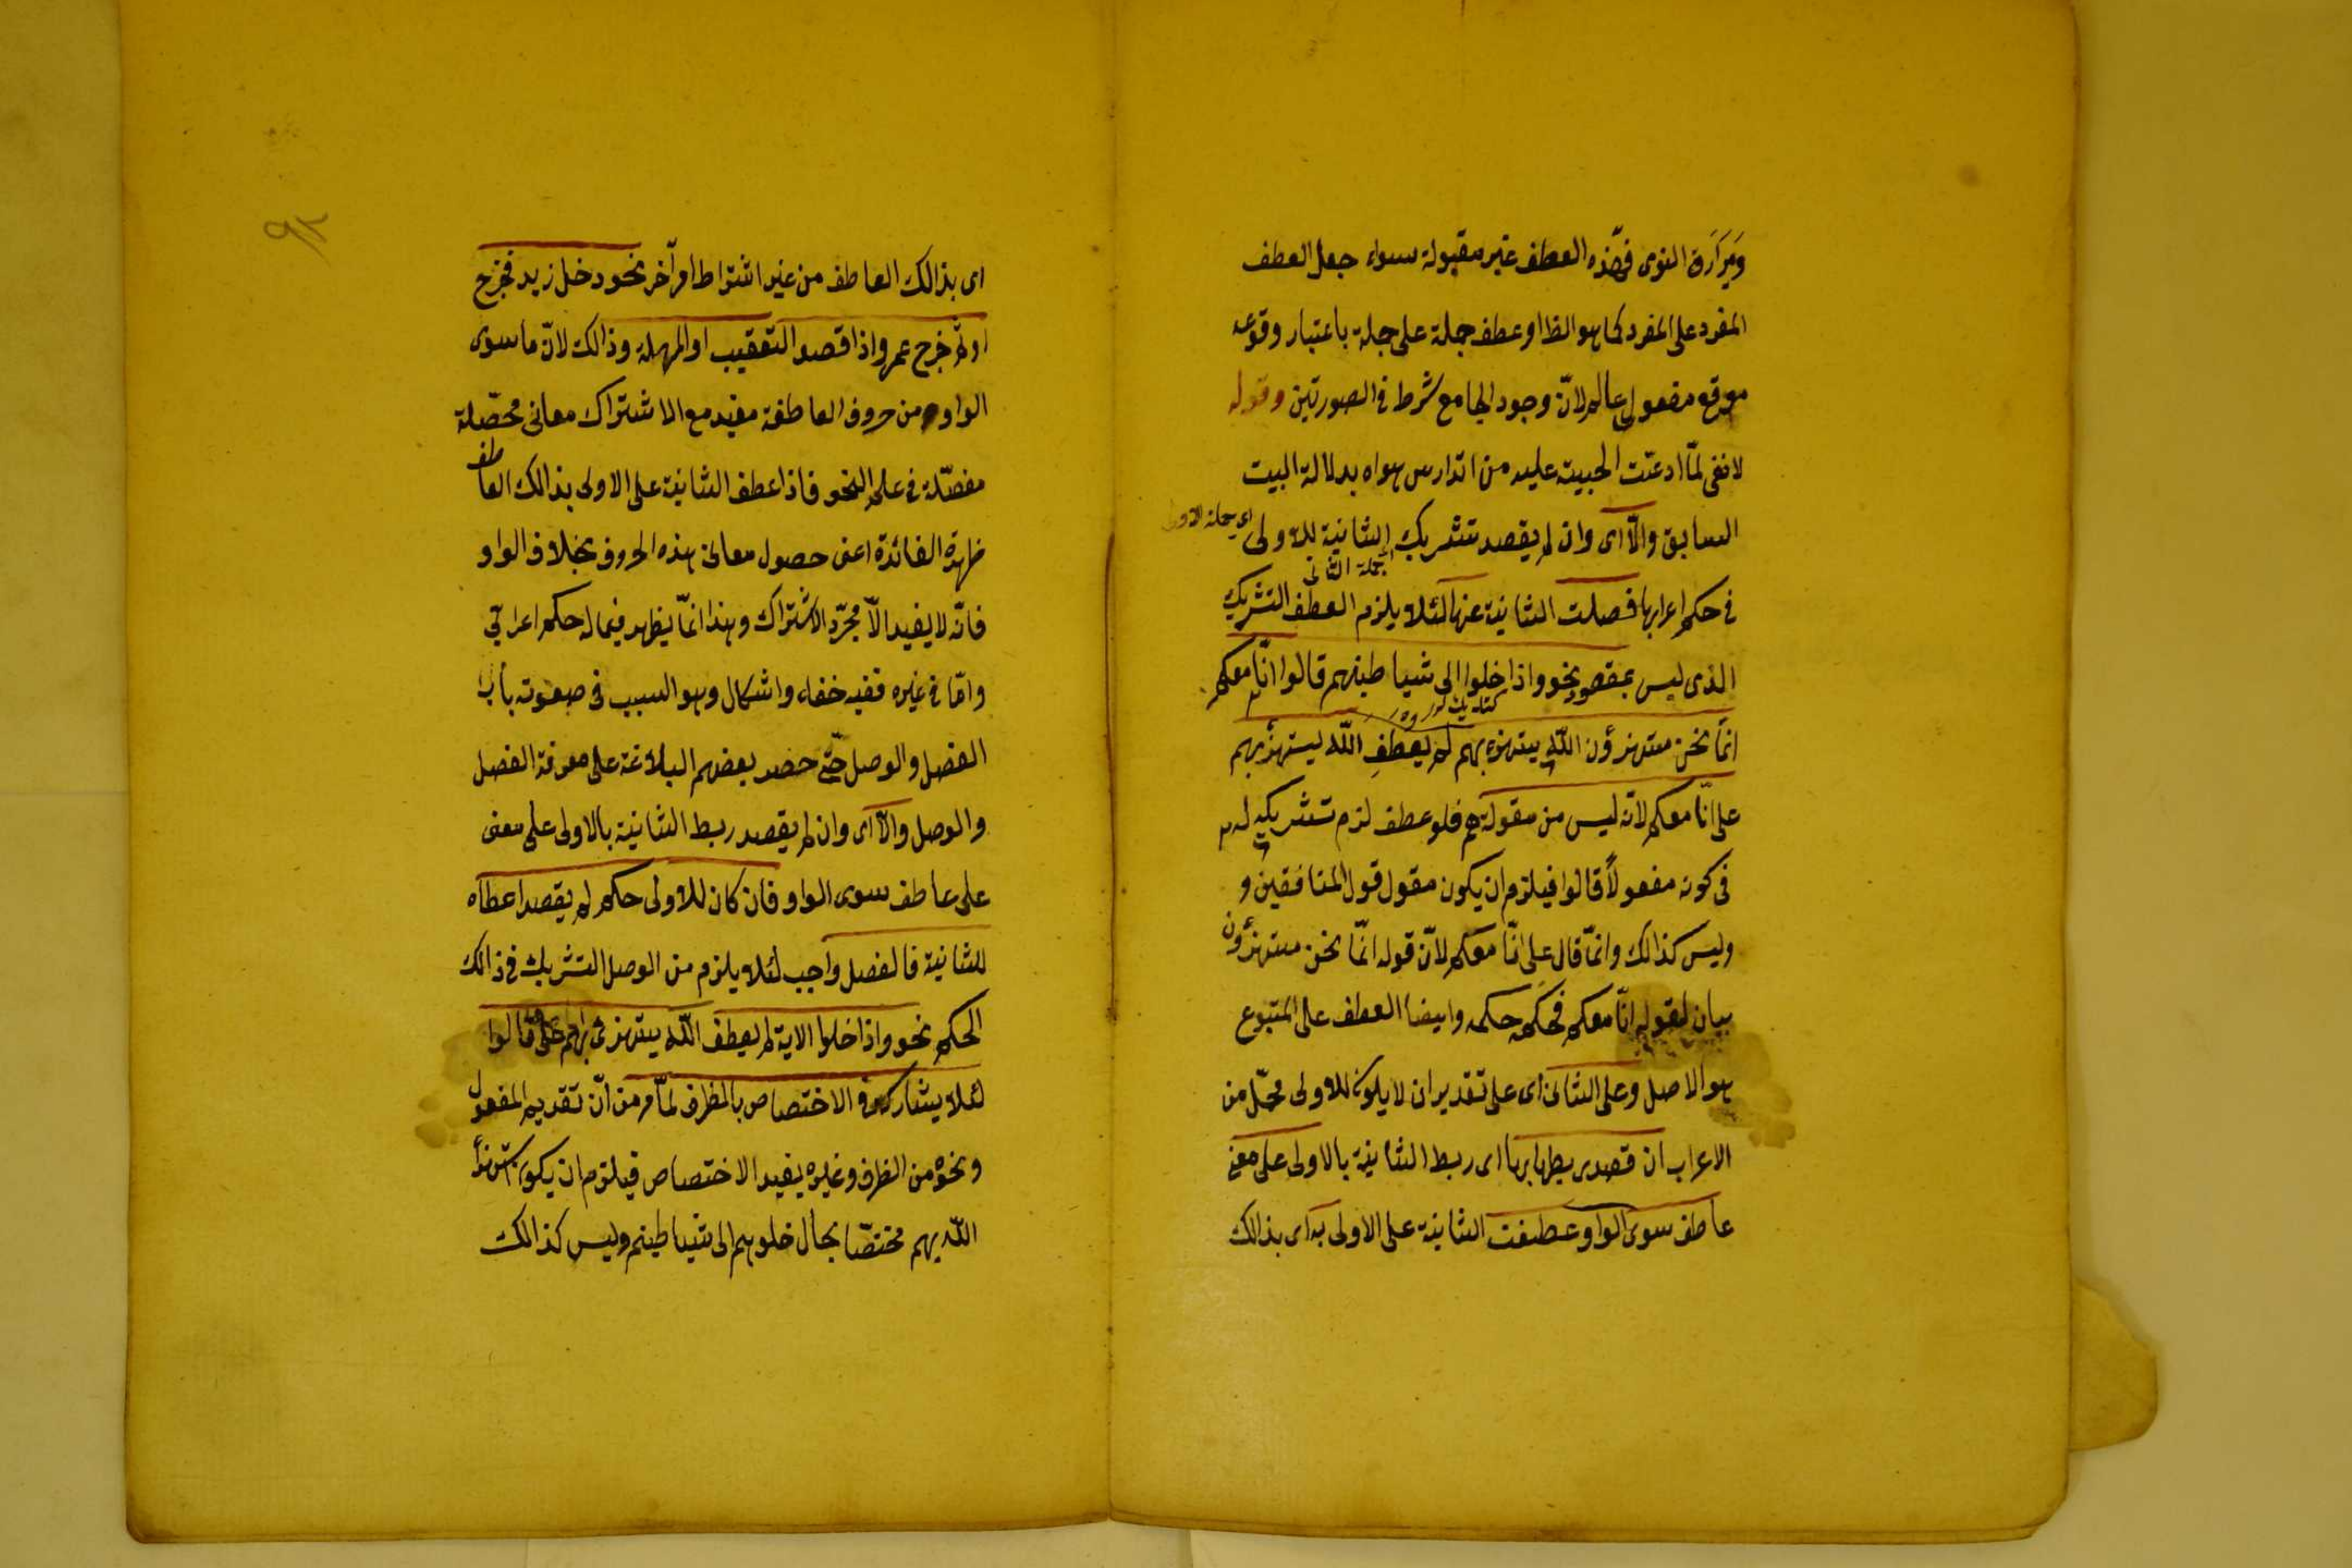 ومرارة النوى فهذه العطف غير مقبولة سواء جعل العطف
المفرد على المفرد كما هو الظ او عطف جملة على جملة باعتبار وقوعه
موقع مفعولى عالم لانّ وجود الجامع شرط فى الصورتين وقوله
لا نفى لمّا ادعت الحبيبة عليه من اندارس هواه بدلالة البيت
السابق والّا اى وان لم يقصد تشريك الثانية للاولى
اى جملة الاولى
جملة الثانى
فى حكم اعرابها فصلت الثانية عنها لئلا يلزم العطف التشريك
الذى ليس بمقصود نحو واذا خلوا الى شياطينهم قالوا انّا معكم
انّما نحن مستهزؤن اللّه يستهزء بهم لم يعطف اللّه يستهزء بهم
على انّا معكم لانّه ليس من مقولتهم فلو عطف لزم تشريكه له
فى كونه مفعولاً قالوا فيلزم ان يكون مقول قول المنافقين و
وليس كذالك وانّما قال على انّا معكم لانّ قوله انّما نحن مستهزؤن
بيان لقوله انّا معكم فحكمه حكمه وايضا العطف على المتبوع
هو الاصل وعلى الثانى اى على تقدير ان لا يكون للاولى محلّ من
الاعراب ان قصد ربطها بها اى ربط الثانية بالاولى على معنى
عاطف سوى الواو عطفت الثانية على الاولى به اى بذالك
٩٢
اى بذالك العاطف من غير اشتراط امر آخر نحو دخل زيد فخرج
او ثمّ خرج عمرو اذا قصد التعقيب او المهلة وذالك لانّ ما سوى
الواو من حروف العاطفة مفيد مع الاشتراك معانى محصّلة
مفصّلة فى علم النحو فاذا عطف الثانية على الاولى بذالك العاطف
ظهرة الفائدة اعنى حصول معانى هذه الحروف بخلاف الواو
فانّه لا يفيد الّا مجرّد الاشتراك وهذا انّما يظهر فيما له حكم اعرابى
وامّا فى غيره ففيه خفاء واشكال وهو السبب فى صعوبة باب
الفصل والوصل حتّى حصر بعضهم البلاغة على معرفة الفصل
والوصل والّا اى وان لم يقصد ربط الثانية بالاولى على معنى
على عاطف سوى الواو فان كان للاولى حكم لم يقصد اعطاه
للثانية فالفصل واجب لئلا يلزم من الوصل التشريك فى ذالك
الحكم نحو واذا خلوا الاية لم يعطف اللّه يستهزئ بهم على قالوا
لئلا يشاركه فى الاختصاص بالظرف لمّا مر من انّ تقديم المفعول
ونحوه من الظرف وغيره يفيد الاختصاص فيلزم ان يكون استهزأ
اللّه بهم مختصّا بحال خلوهم الى شياطينهم وليس كذالك